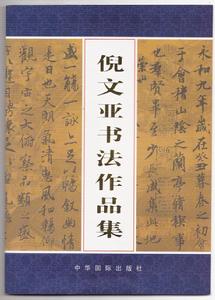 永和九年歲
于會稽山陰之蘭亭
也羣賢畢至少長咸集此地
崇山
倪文亚书法作品集
盛一觴一詠亦足以暢敘幽情
是日也天朗氣清惠風和暢
觀宇宙之大俯察品類之盛
中华国际出版社